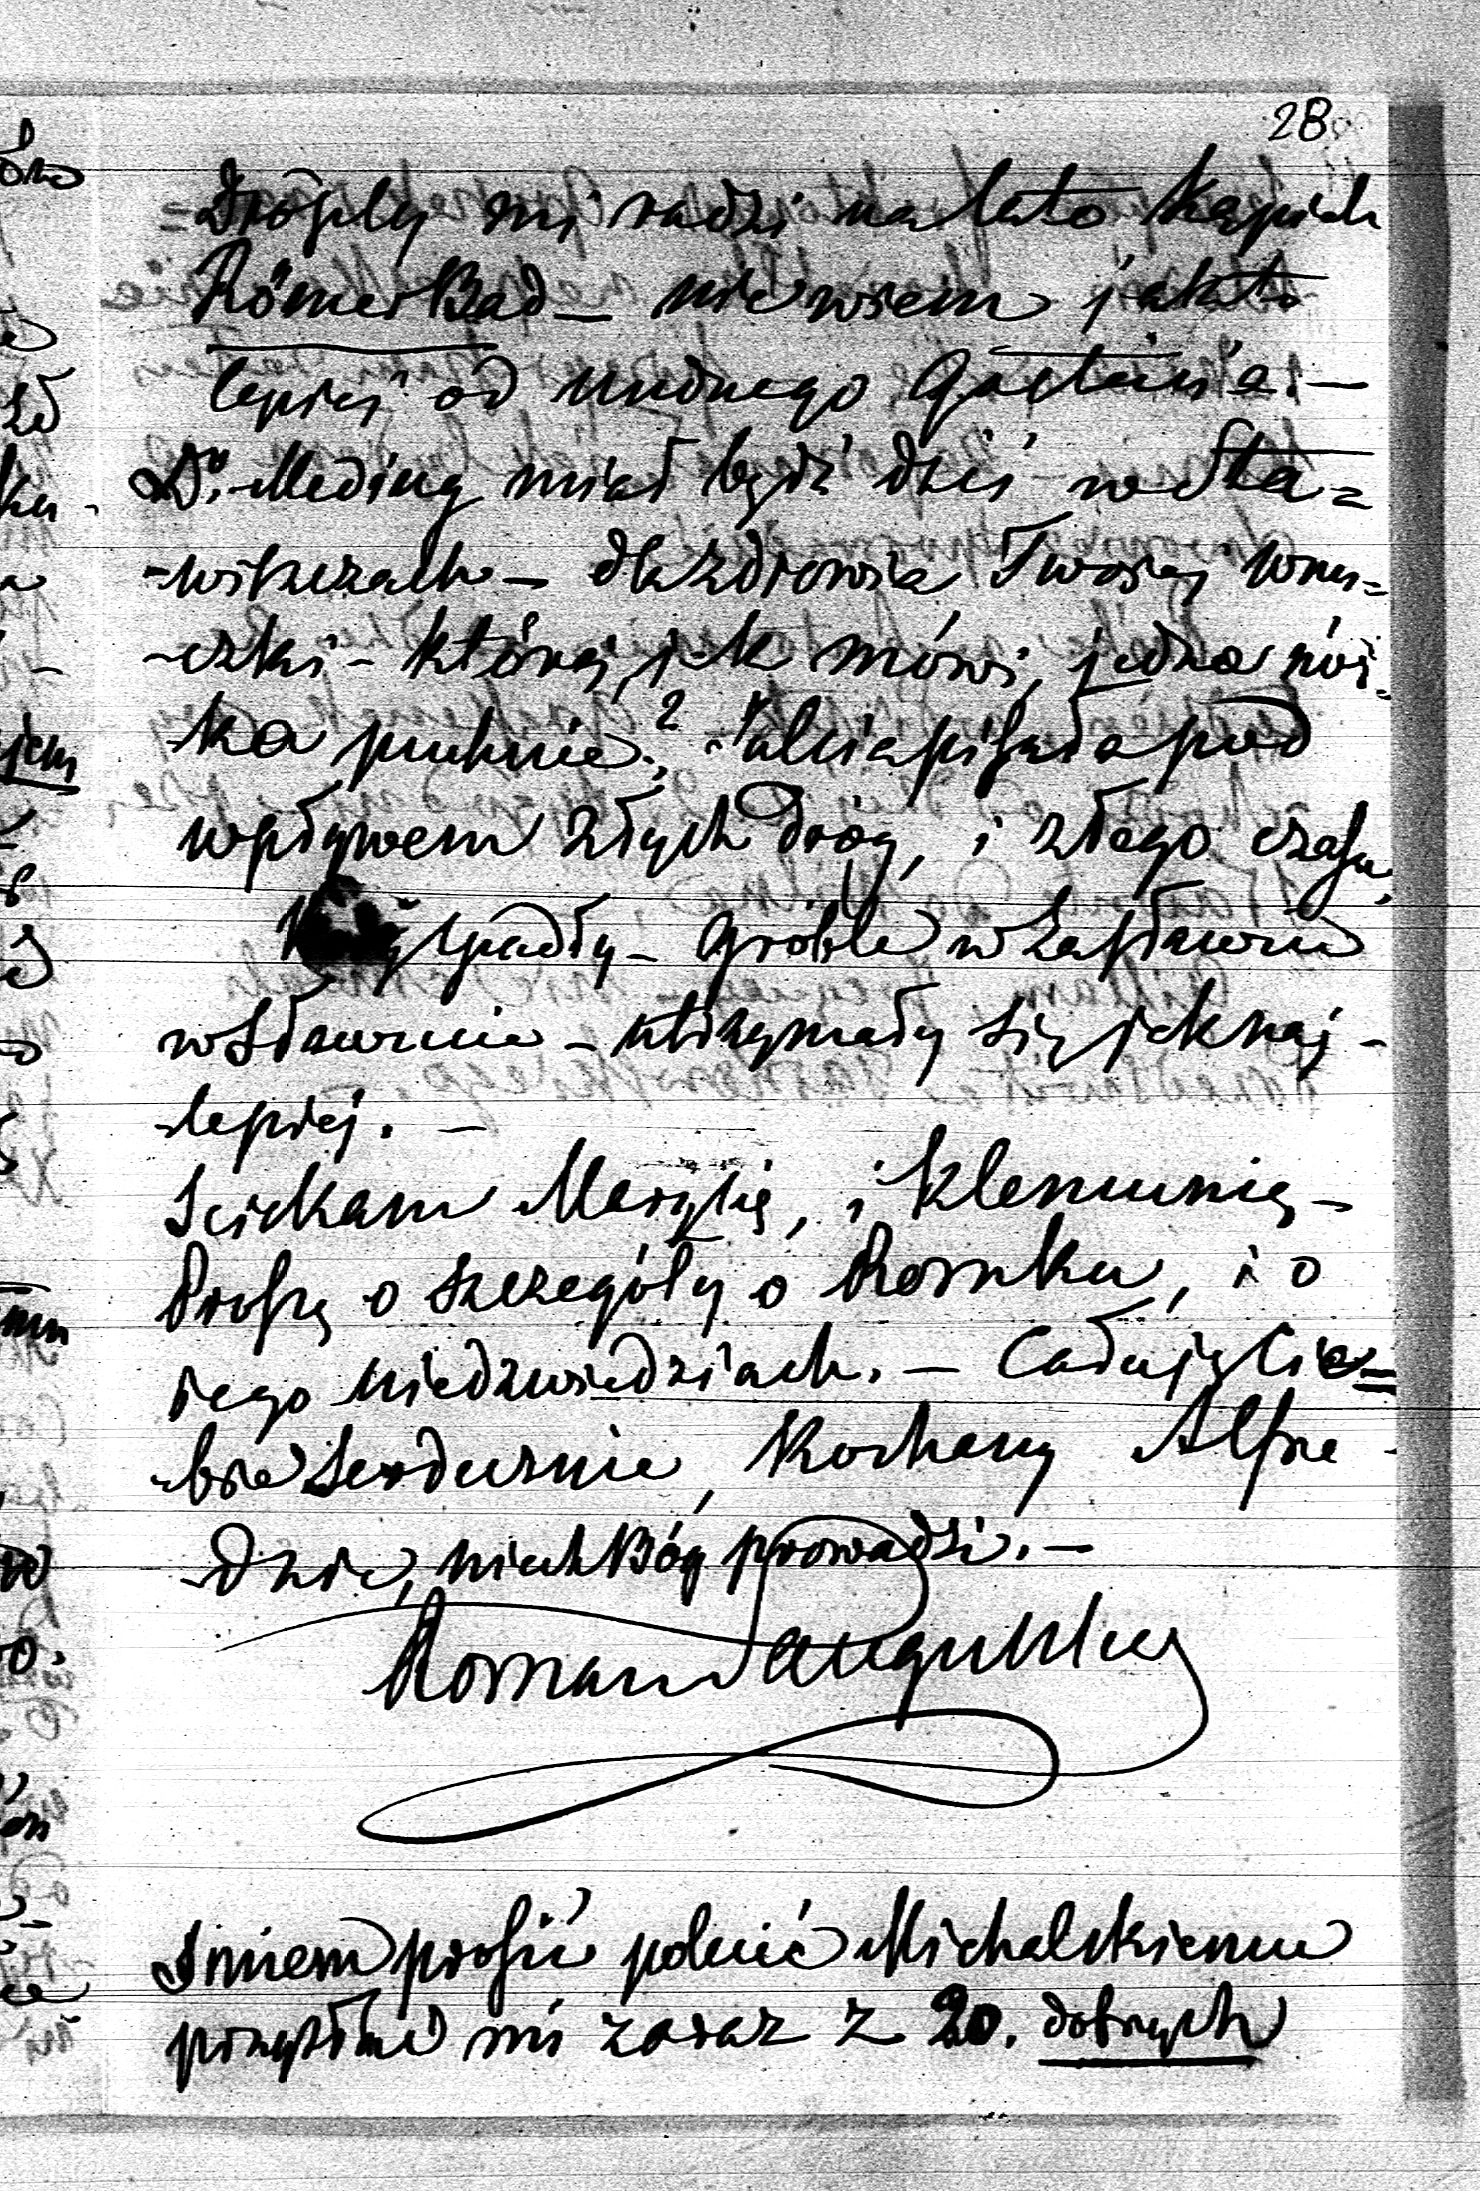 28
Drogily mi radzi na lato kąpiel
Römer Bad – nie wiem jak to
lepiej od nudnego Gastein'a. –
Dr. Meding miał bydź dziś w Sła=
-wiszczach – dla zdrowia Twojej wnu=
-czki – której, jak mówi, jedna nóż=
ka puchnie? pod
wpływem złych dróg, i złego czasu.
spadły – Groble w Zasławiu
w Sławucie – utrzymały się jak naj-
-lepiej. –
Sciskam Marylię, i Klemunię –
Proszę o szczegóły o Romku, i o
iego niedzwiedziach. – Całuję Cie=
-bie serdecznie, Kochany Alfre
-dzie, niech Bóg prowadzi. –
Roman Sanguszko
Smiem prosić polecić Michalskiemu
przysłać mi zaraz z 20. dobrych